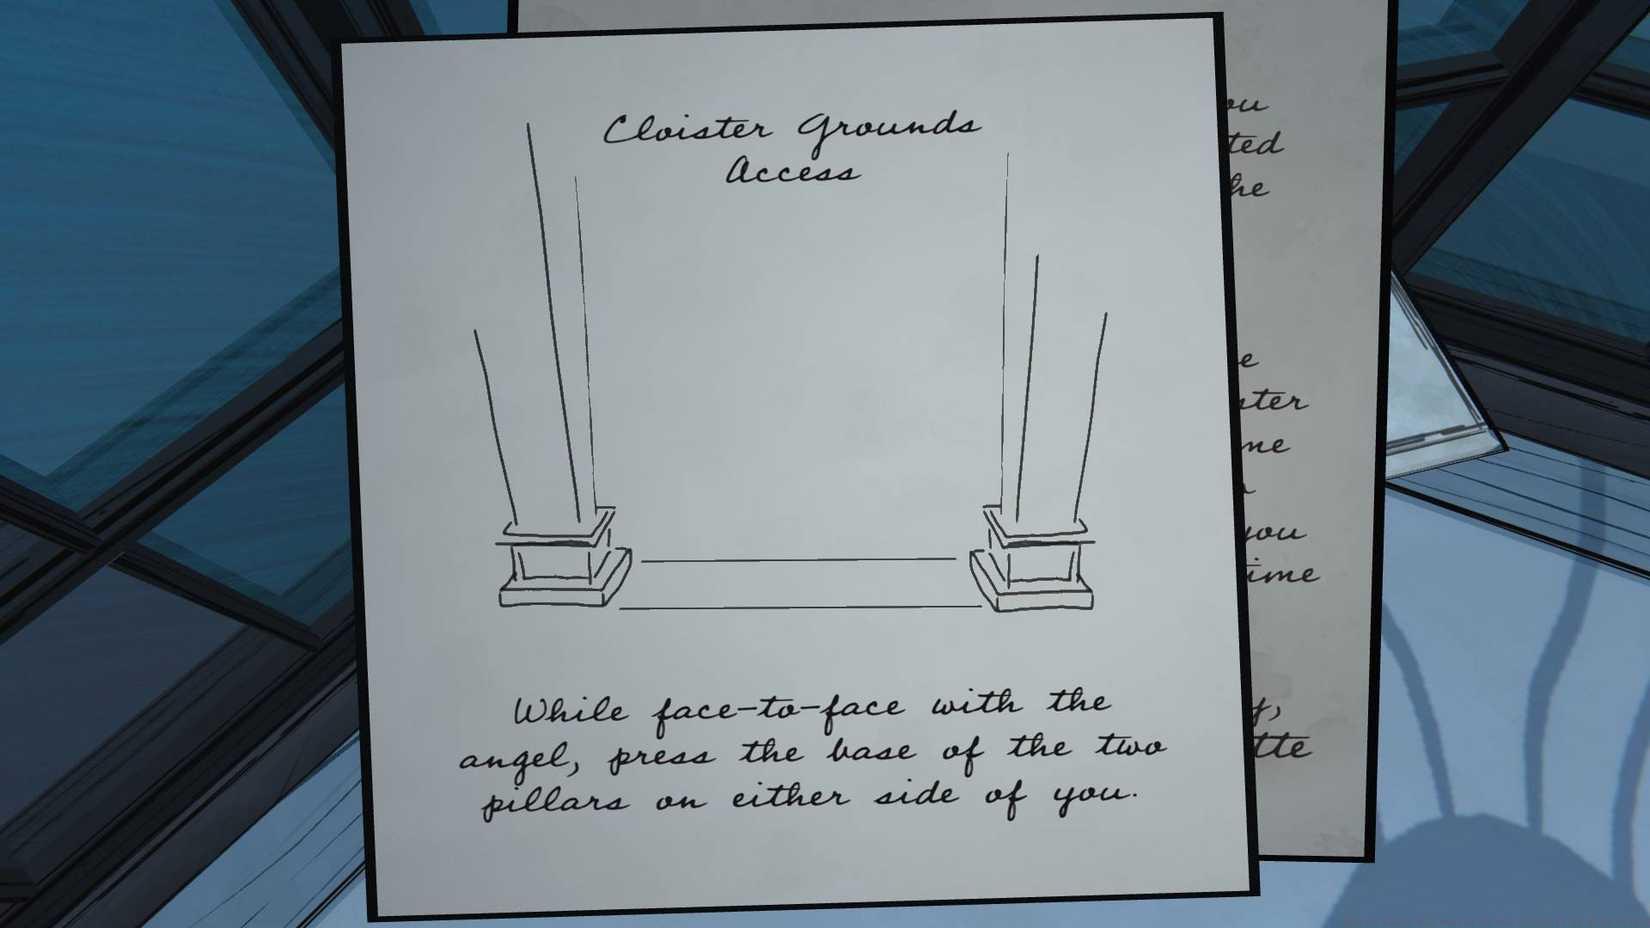 Cloister Grounds
Access
While face-to-face with the
angel, press the base of the two
pillars on either side of you.
ou
ted
he
e
ster
me
you
time
y,
tte